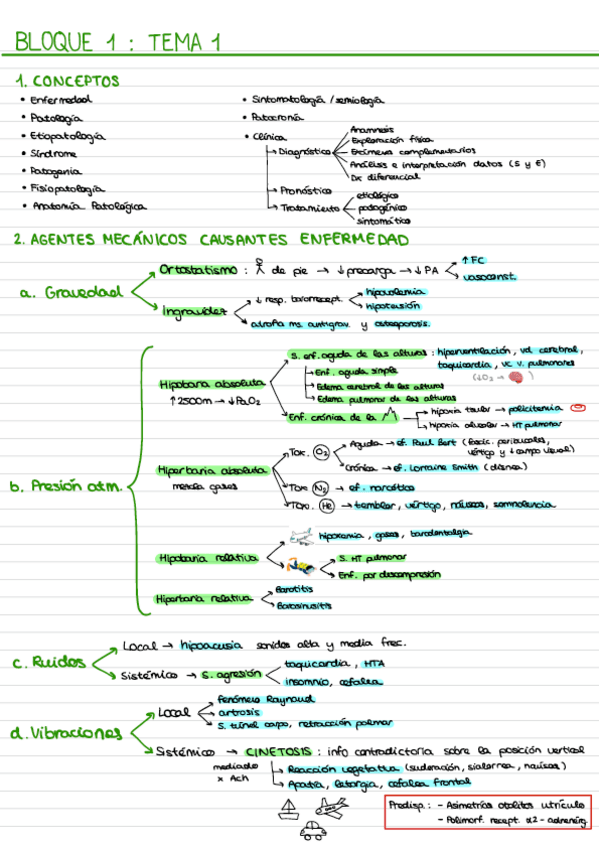 BLOQUE 1 : TEMA 1
1. CONCEPTOS
• Enfermedad
• Patología
• Etiopatología
• Síndrome
• Patogenia
• Fisiopatología
• Anatomía Patológica
• Sintomatología / semiología
• Patocronía
• Clínica
Diagnóstico
Anamnesis
Exploración física
Exámenes complementarios
Análisis e interpretación datos (S y E)
Dx diferencial
Pronóstico
Tratamiento
etiológico
patogénico
sintomático
2. AGENTES MECÁNICOS CAUSANTES ENFERMEDAD
a. Gravedad
Ortostatismo : de pie → ↓ precarga → ↓ PA
↑ FC
vasoconst.
Ingravidez
↓ resp. barorrecept.
hipovolemia
hipotensión
atrofia ms. antigrav. y osteoporosis.
b. Presión atm.
Hipobaria absoluta
↑ 2500m → ↓ PaO2
S. enf. aguda de las alturas : hiperventilación, vd cerebral,
taquicardia, vc v. pulmonares
(↓O2 → )
Enf. aguda simple
Edema cerebral de las alturas
Edema pulmonar de las alturas
Enf. crónica de la
hipoxia tisular → policitemia
hipoxia alveolar → HT pulmonar
Hiperbaria absoluta
mezcla gases
Tox. O2
Aguda → ef. Paul Bert (fascic. peribucales,
vértigo y ↓ campo visual)
Crónica → ef. Lorraine Smith (disnea)
Tox N2 → ef. narcótico
Tox. He → temblor, vértigo, náuseas, somnolencia
Hipobaria relativa
hipoxemia, gases, barodontalgia
S. HT pulmonar
Enf. por descompresión
Hiperbaria relativa
Barotitis
Barosinusitis
c. Ruidos
Local → hipoacusia sonidos alta y media frec.
Sistémico → S. agresión
taquicardia, HTA
insomnio, cefalea
d. Vibraciones
Local
fenómeno Raynaud
artrosis
S. túnel carpo, retracción palmar
Sistémico → CINETOSIS : info contradictoria sobre la posición vertical
mediado
x Ach
Reacción vegetativa (sudoración, sialorrea, náuseas)
Apatía, letargia, cefalea frontal
Predisp. : - Asimetrías otolitos utrículo
- Polimorf. recept. α2 - adrenérg.